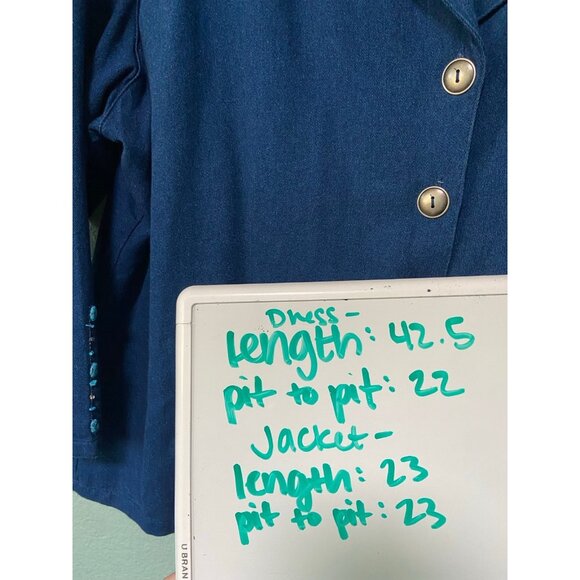 Dress-
length: 42.5
pit to pit: 22
Jacket-
length: 23
pit to pit: 23
U BRAN